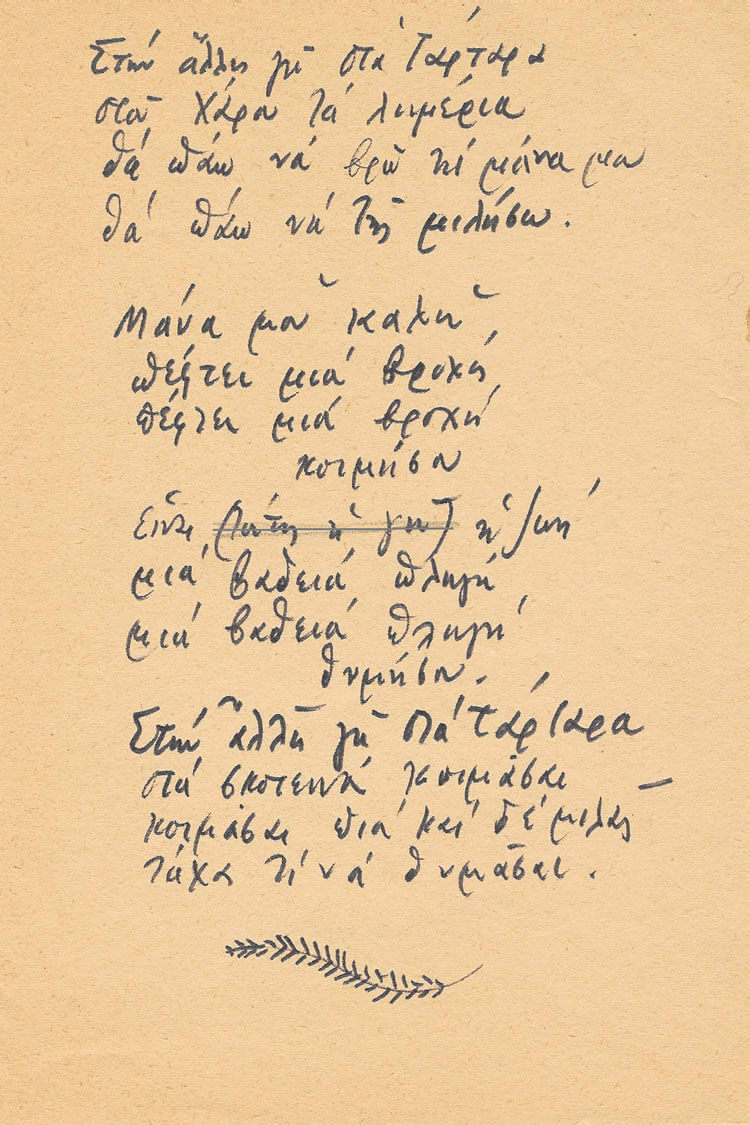 Στήν ἄλλη γῆ στά Τάρταρα
στοῦ Χάρου τά λημέρια
θά πάω νά βρῶ τή μάνα μου
θά πάω νά τῆς μιλήσω.
Μάνα μου καλή
πέφτει μιά βροχή
πέφτει μιά βροχή
κοιμήσου
Εἶναι (τούτη ἡ γῆ) ἡ ζωή
μιά βαθειά πληγή
μιά βαθειά πληγή
θυμήσου.
Στήν ἄλλη γῆ στά Τάρταρα
στά σκοτεινά κοιμᾶσαι
κοιμᾶσαι πιά καί δέ μιλᾶς
τάχα τί νά θυμᾶσαι.